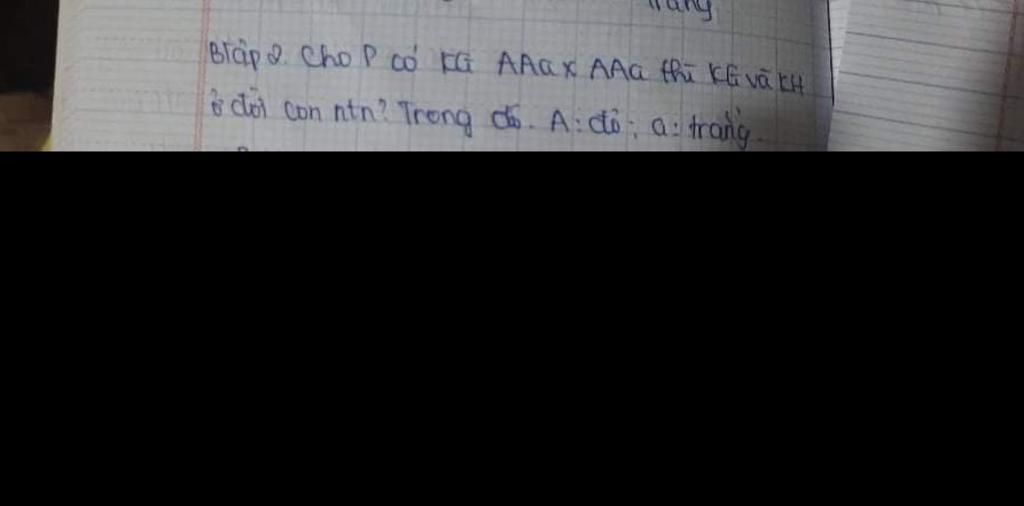 trắng
BTập 2. Cho P có KG AAa x AAa thì KG và KH
ở đời con ntn? Trong đó. A: đỏ; a: trắng.